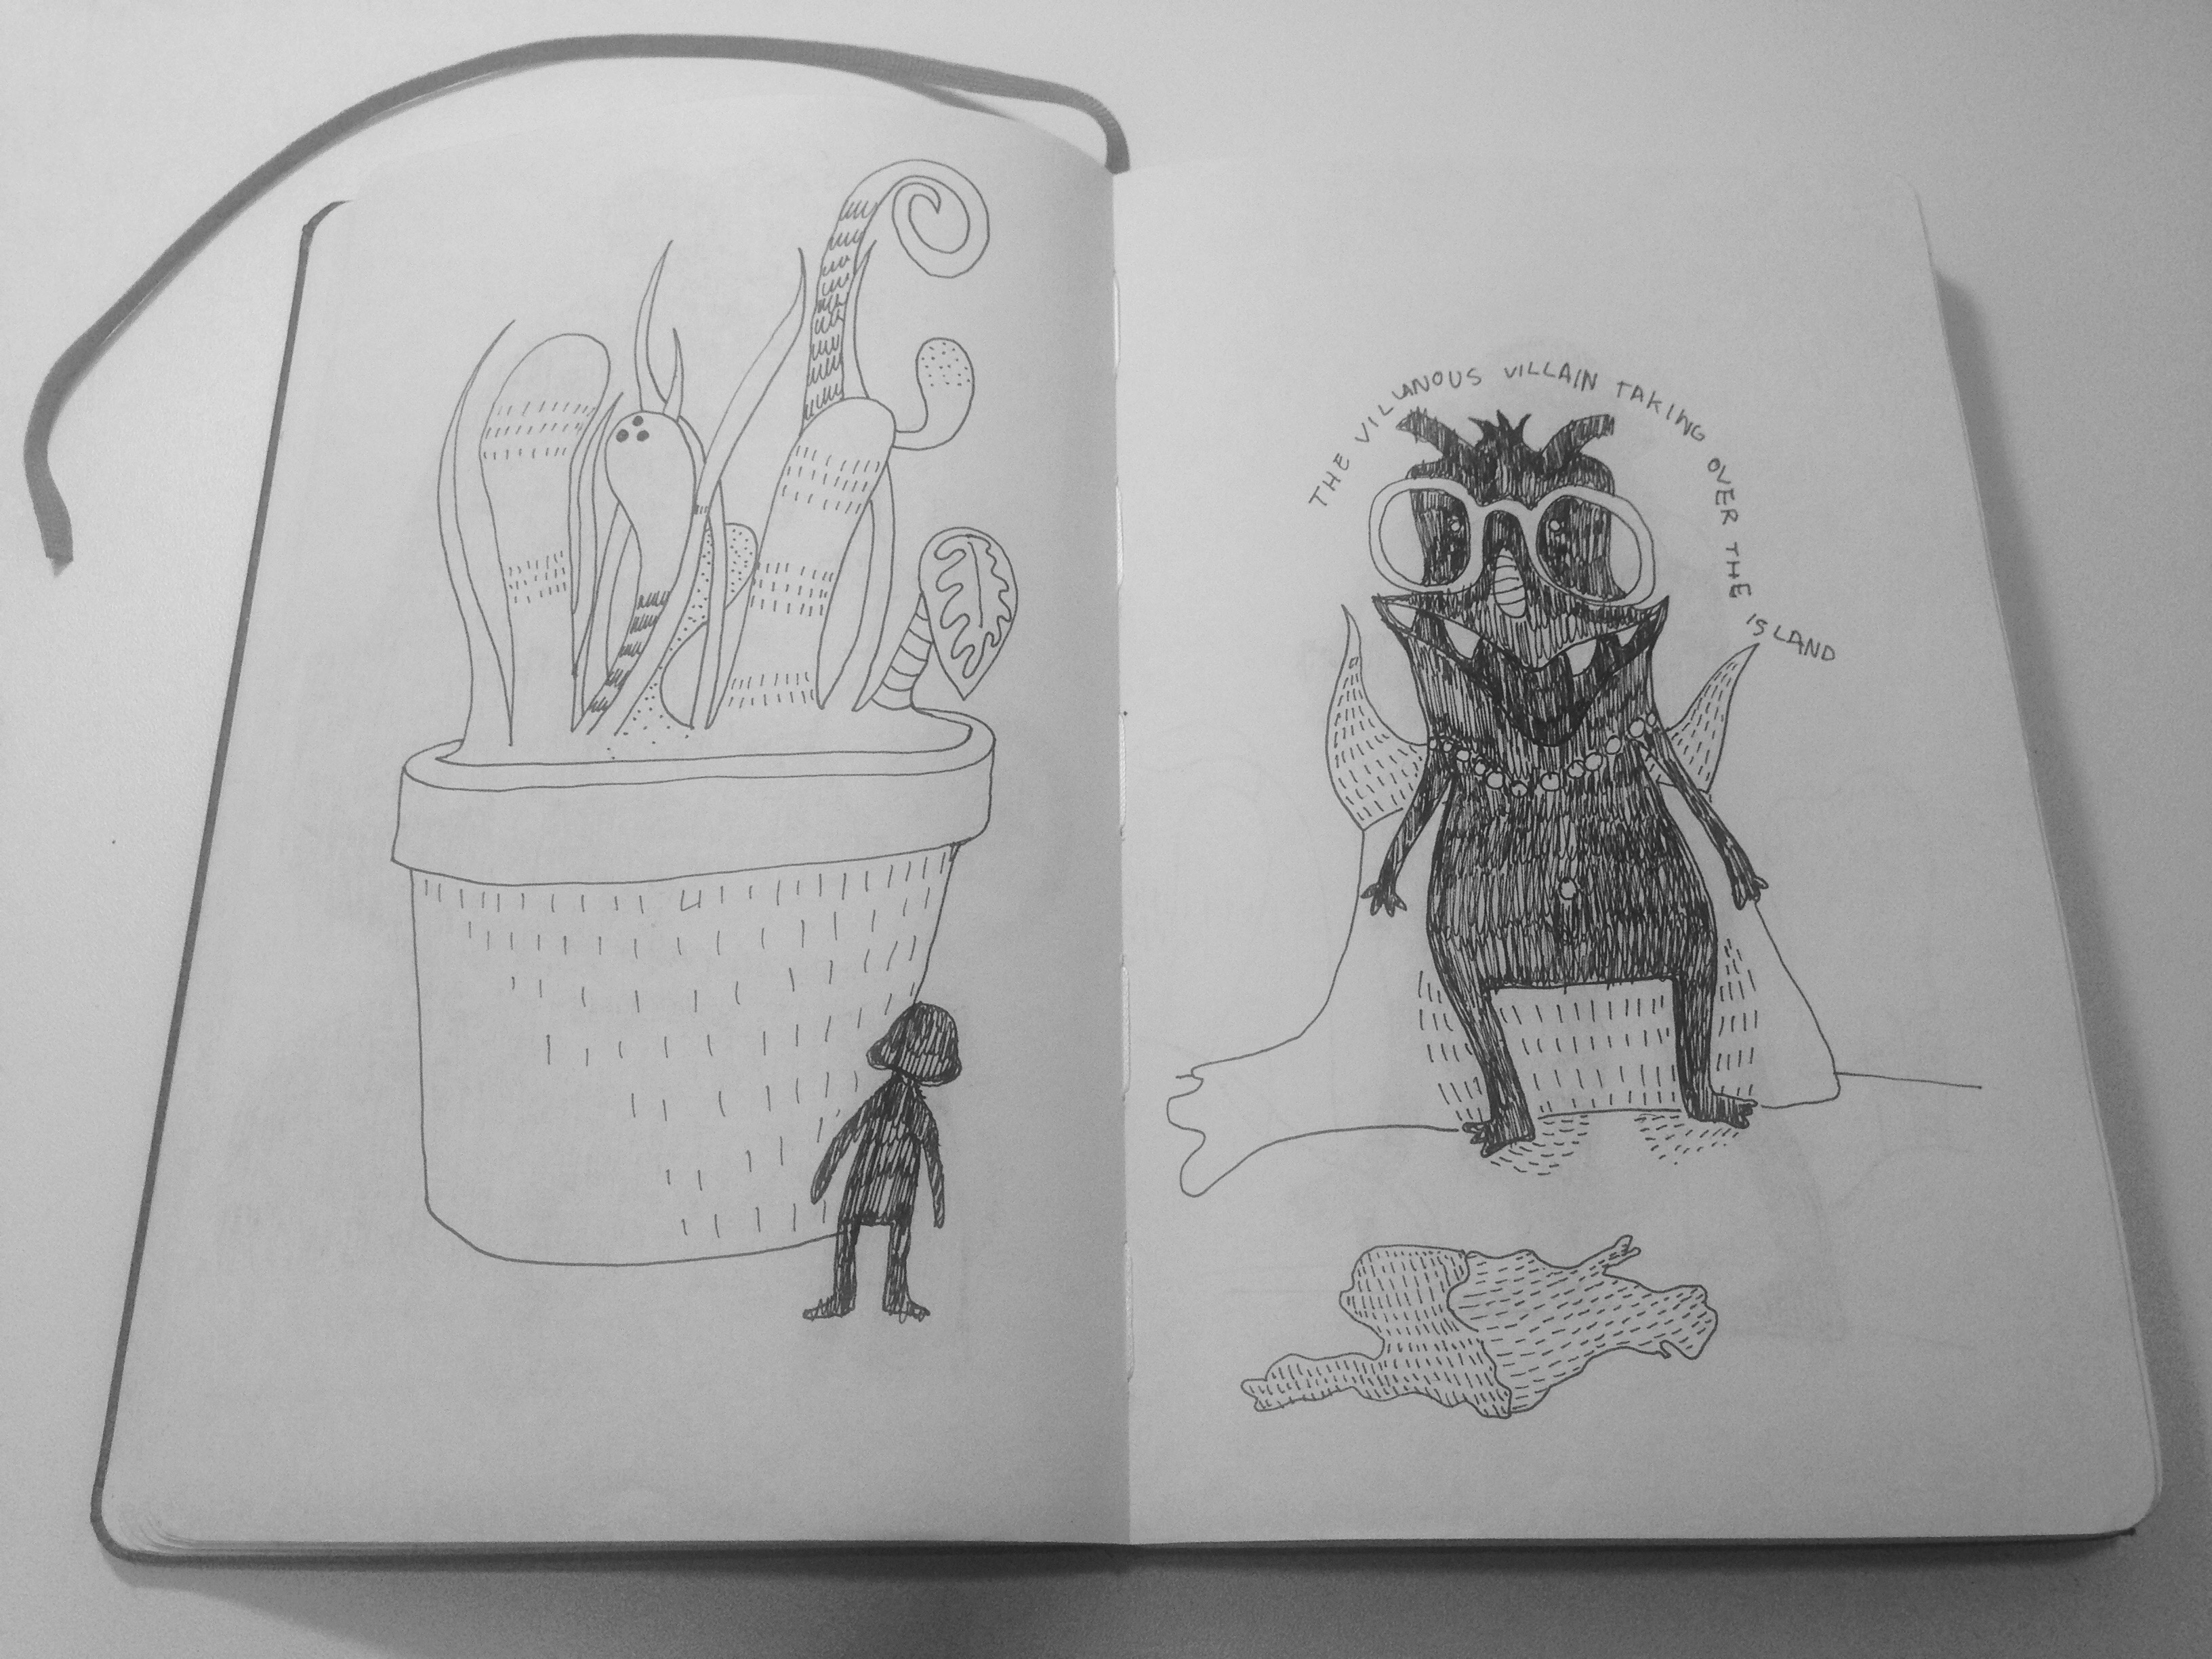 THE VILLANOUS VILLAIN TAKING OVER THE ISLAND